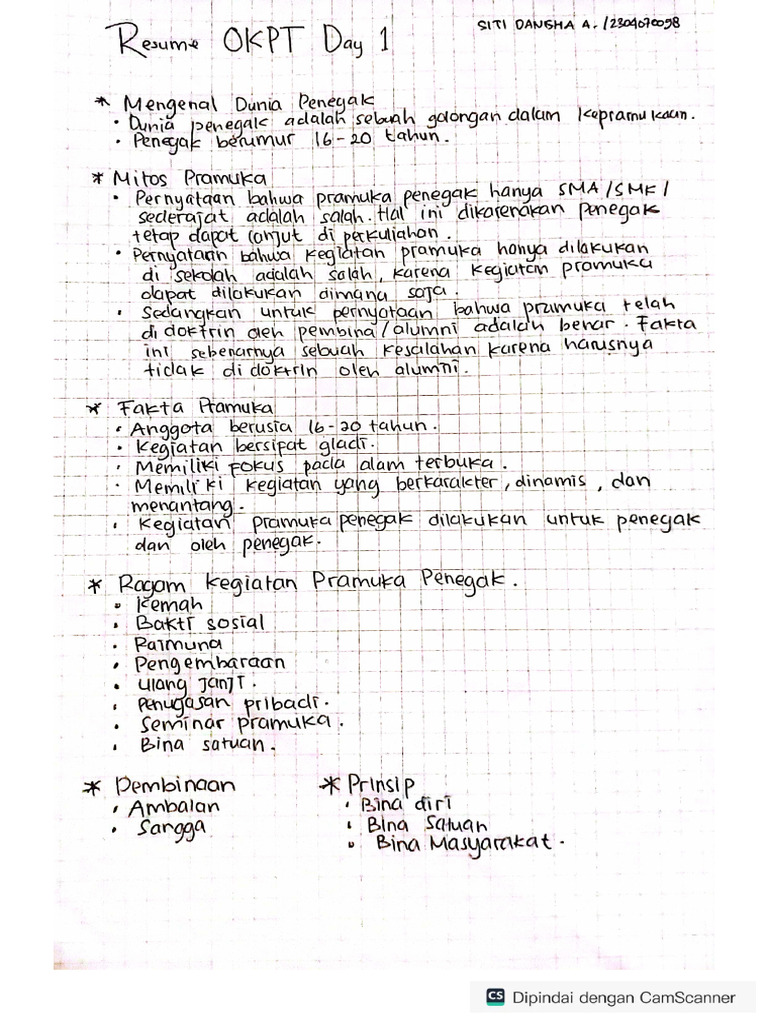 Resume OKPT Day 1
SITI DANGHA A. / 2304070098
* Mengenal Dunia Penegak
• Dunia penegak adalah sebuah golongan dalam kepramukaan.
• Penegak berumur 16-20 tahun.
* Mitos Pramuka
• Pernyataan bahwa pramuka penegak hanya SMA/SMK/
sederajat adalah salah. Hal ini dikarenakan penegak
tetap dapat lanjut di perkuliahan.
• Pernyataan bahwa kegiatan pramuka hanya dilakukan
di sekolah adalah salah, karena kegiatan pramuka
dapat dilakukan dimana saja.
• Sedangkan untuk pernyataan bahwa pramuka telah
di doktrin oleh pembina/alumni adalah benar. Fakta
ini sebenarnya sebuah kesalahan karena harusnya
tidak di doktrin oleh alumni.
* Fakta Pramuka
• Anggota berusia 16-20 tahun.
• Kegiatan bersifat gladi.
• Memiliki fokus pada alam terbuka.
• Memiliki kegiatan yang berkarakter, dinamis, dan
menantang.
• Kegiatan pramuka penegak dilakukan untuk penegak
dan oleh penegak.
* Ragam Kegiatan Pramuka Penegak.
• Kemah
• Bakti sosial
• Raimuna
• Pengembaraan
• Ulang Janji.
• Penugasan pribadi.
• Seminar pramuka.
• Bina satuan.
* Pembinaan
• Ambalan
• Sangga
* Prinsip
• Bina diri
• Bina Satuan
• Bina Masyarakat.
CS Dipindai dengan CamScanner